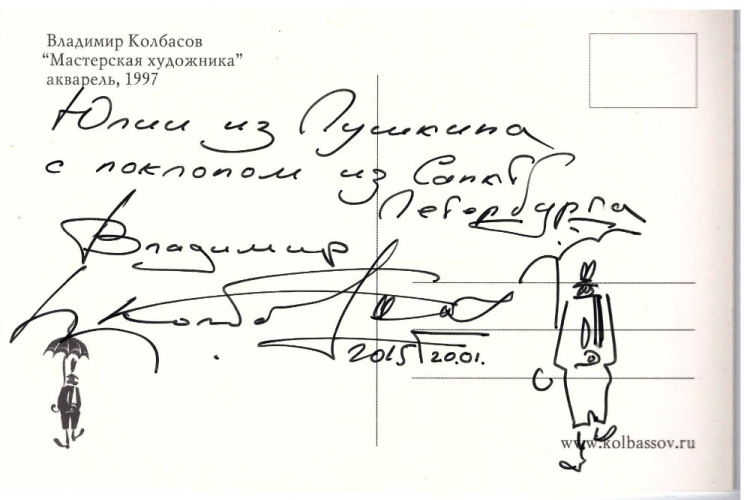 Владимир Колбасов
“Мастерская художника”
акварель, 1997
Юлии из Пушкина
с поклоном из Санкт
Петербурга
Владимир
Колбасов
2015 20.01.
www.kolbassov.ru